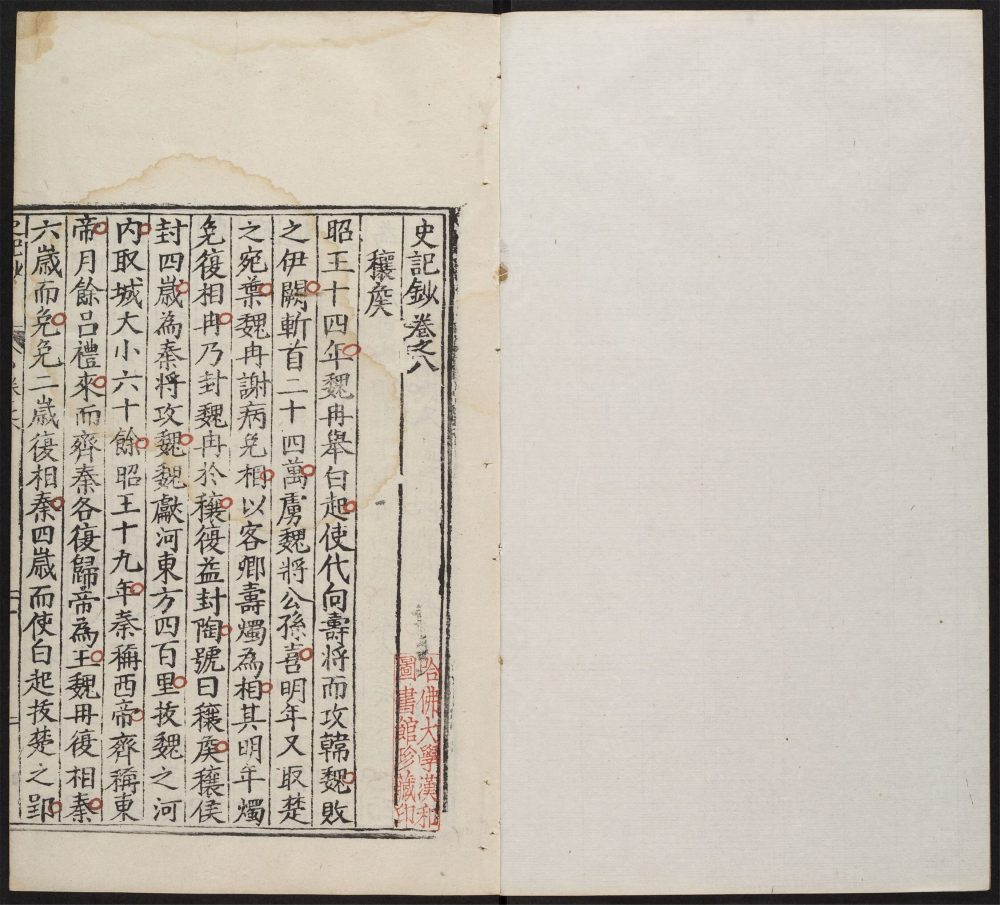 史記鈔卷之八
穰矦
昭王十四年魏冉舉白起使代向壽將而攻韓魏敗
之伊闕斬首二十四萬虜魏將公孫喜明年又取楚
之宛葉魏冉謝病免相以客卿壽燭為相其明年燭
免復相冉乃封魏冉於穰復益封陶號曰穰矦穰侯
封四歲為秦將攻魏魏獻河東方四百里拔魏之河
內取城大小六十餘昭王十九年秦稱西帝齊稱東
帝月餘呂禮來而齊秦各復歸帝為王魏冉復相秦
六歲而免免二歲復相秦四歲而使白起拔楚之郢
哈佛大學漢和
圖書館珍藏印